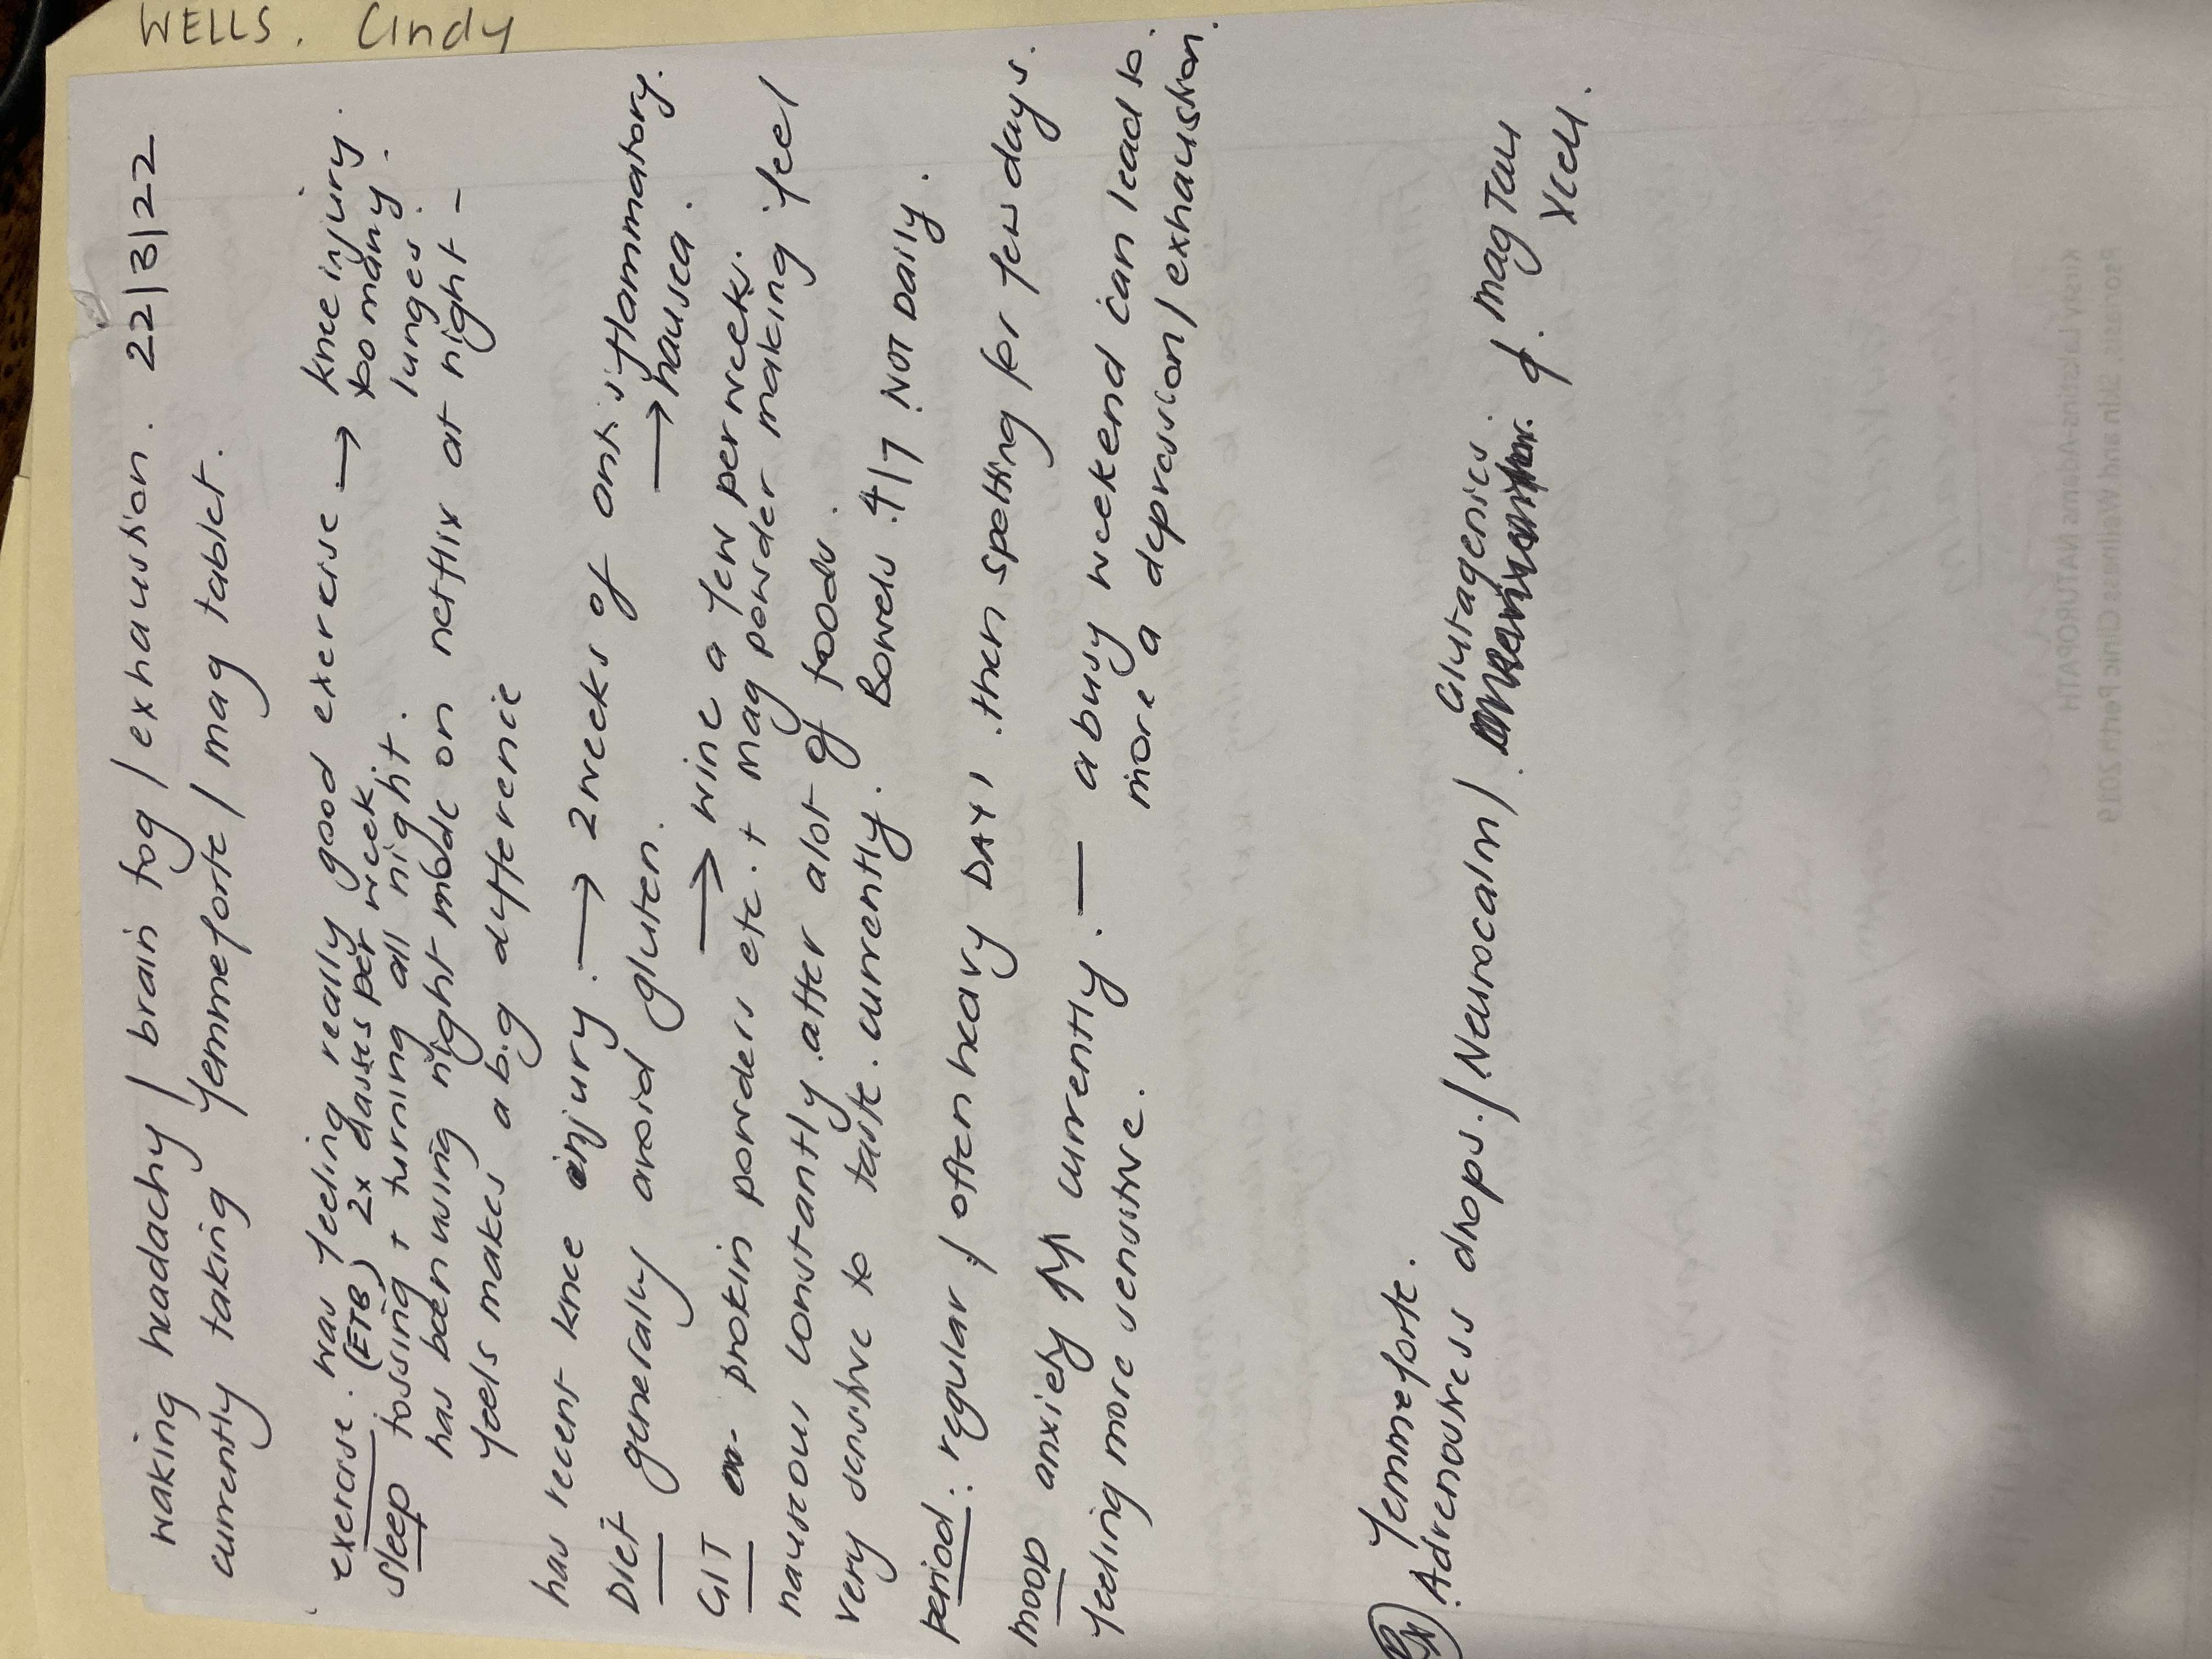 WELLS. Cindy
waking headachy / brain fog / exhaustion. 22/3/22
currently taking femmeforte / mag tablet.
exercise. was feeling really good exercise → knee injury.
(ETB) 2x classes per week. too many
sleep tossing + turning all night. lunges.
has been using night mode on netflix at night -
feels makes a big difference
has recent knee injury. → 2 weeks of anti inflammatory.
→ nausea.
DIET generally avoid gluten.
→ wine a few per week.
GIT protein powders etc. + mag powder making feel
nauseous constantly. after alot of foods.
very sensitive to taste. currently. Bowels 4/7 NOT DAILY.
period: regular / often heavy DAY 1. then spotting for few days.
MOOD anxiety ↑↑ currently. — a busy weekend can lead to.
feeling more sensitive. more a depression/exhaustion.
Rx femmeforte.
Adrenostress drops. / Neurocalm / Glutagenics. mag Taur
Xcell.
Psoriasis, Skin and Wellness Clinic Perth 2019
Kirsty Lakstins-Adams NATUROPATH